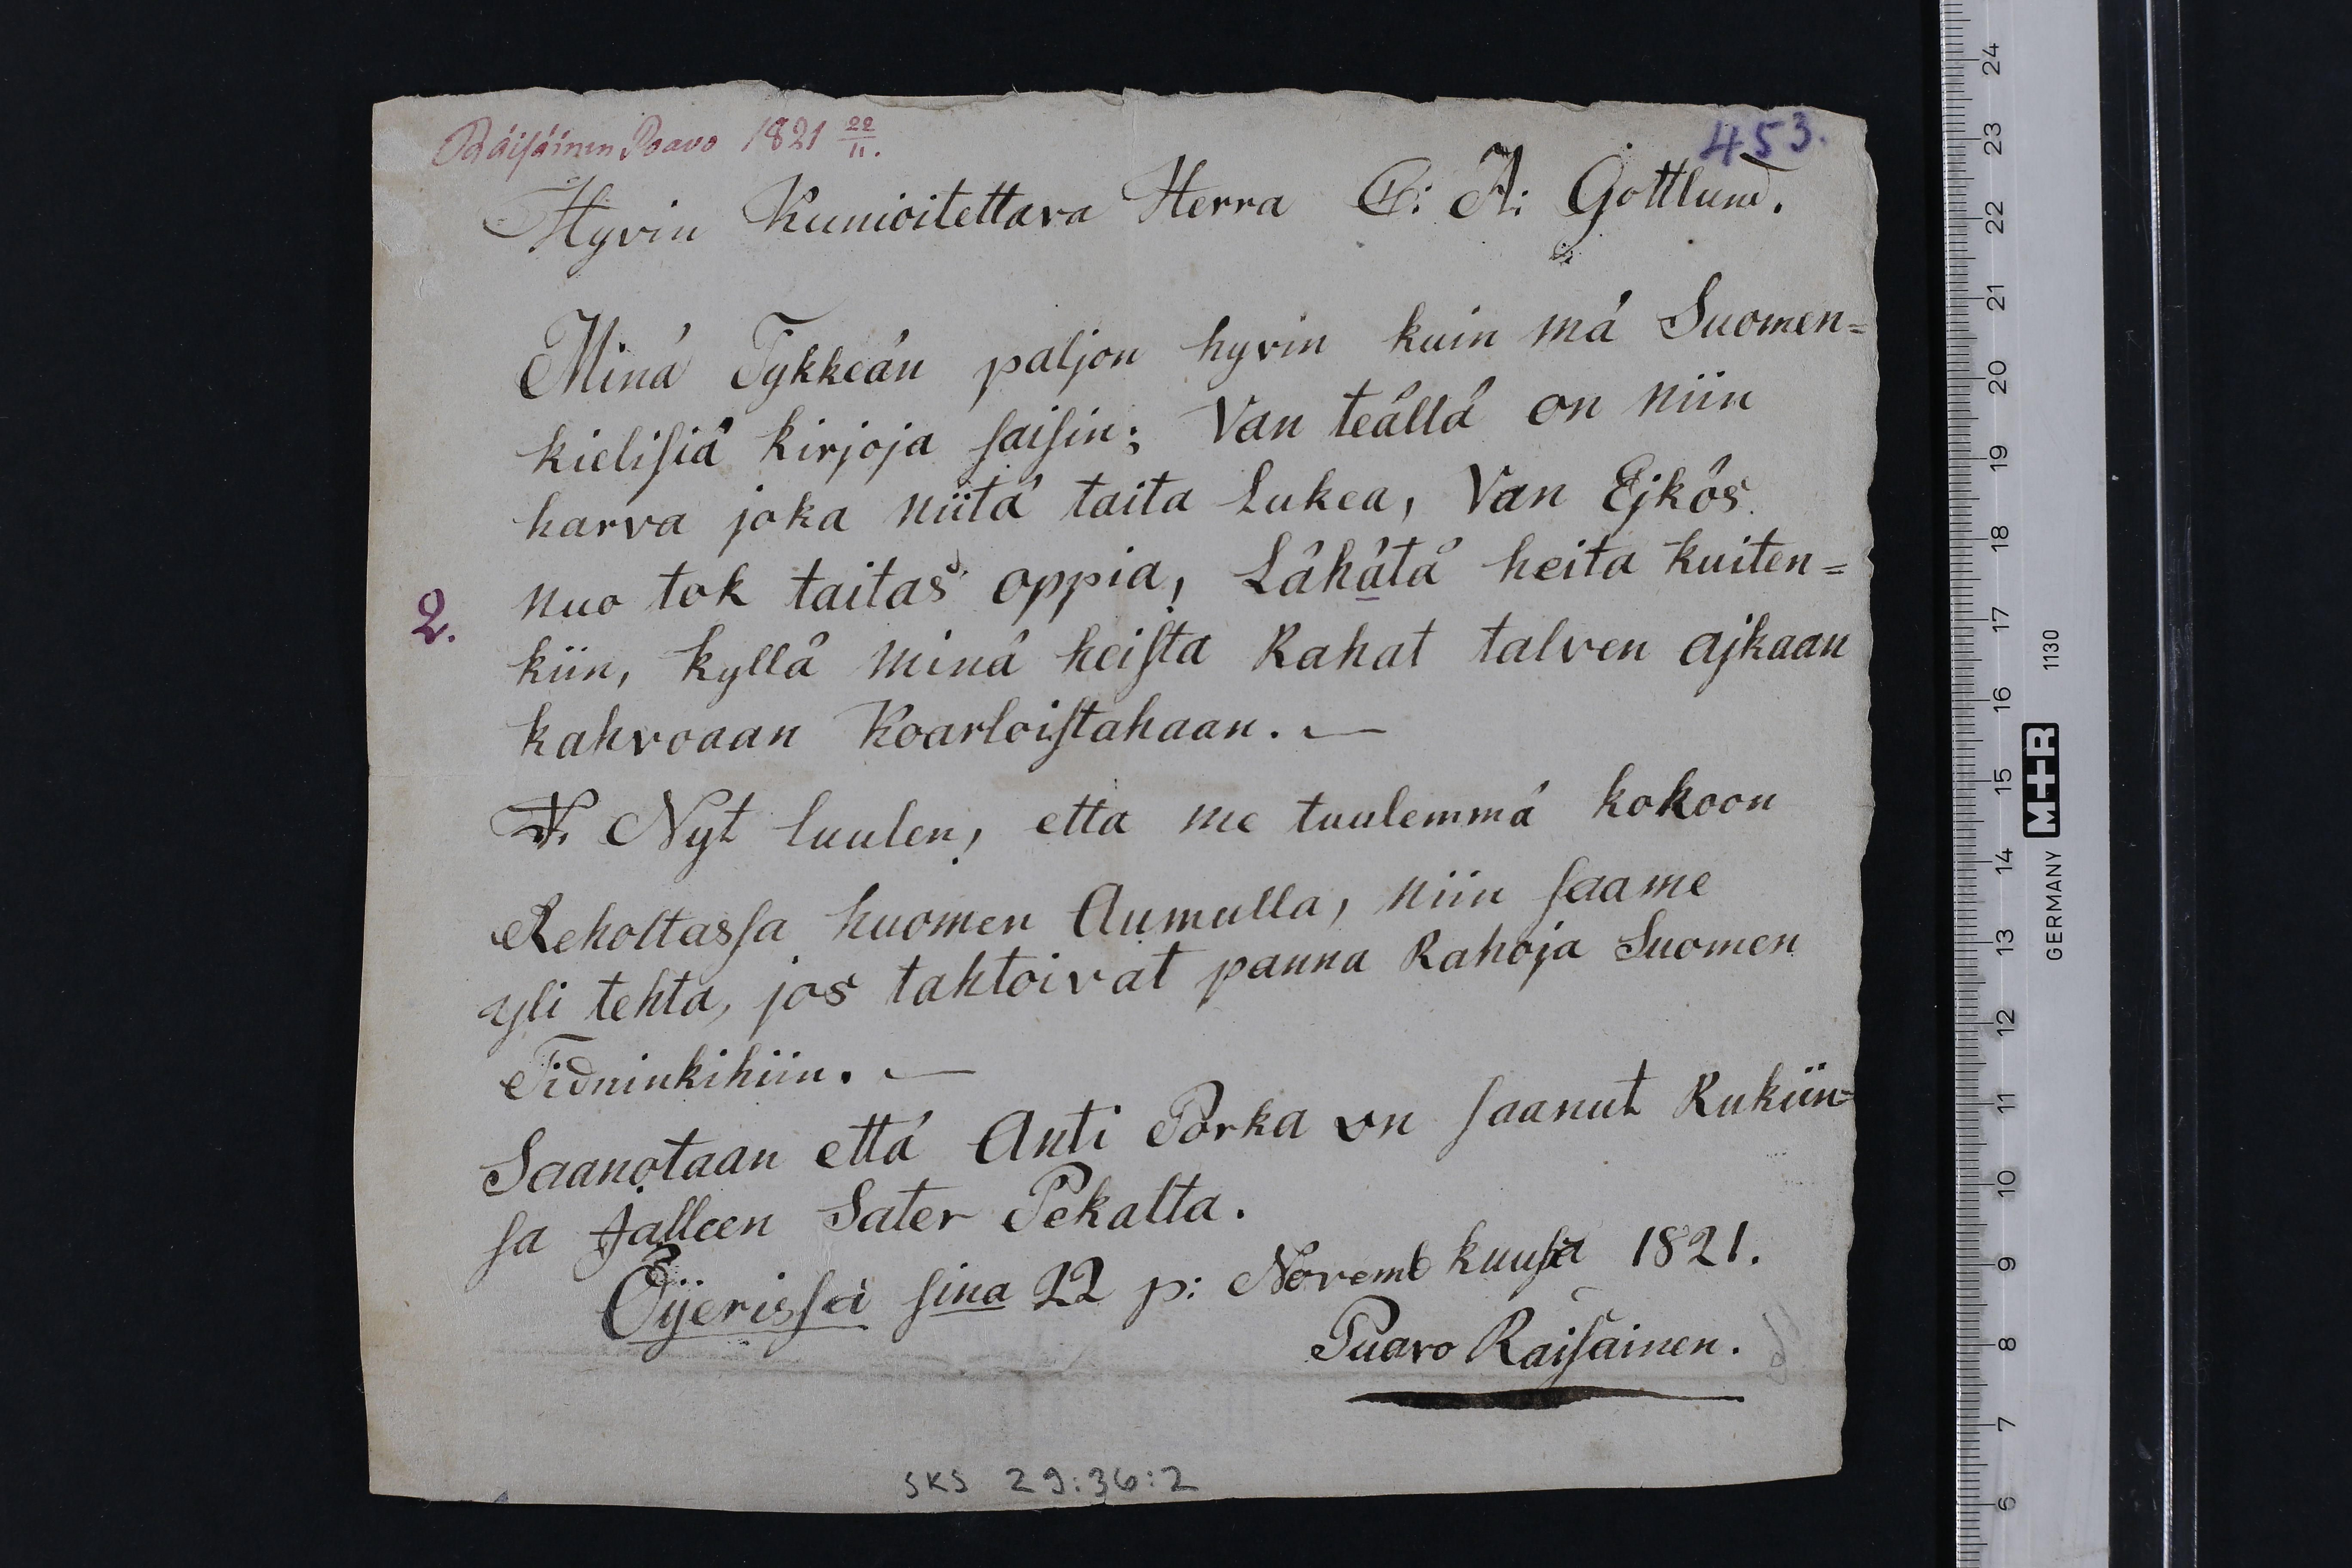 Räisäinen Poavo 1821 22/11.
453.
Hyvin Kunioitettava Herra C: A: Gottlund.
Minä Tykkeän paljon hyvin kuin mä Suomen=
kielisiä kirjoja saisin; Van teällä on niin
harva joka niitä taita Lukea, Van Ejkös
nuo tok taitas oppia, Lähätä heita kuiten=
2.
kiin, kyllä minä heista Rahat talven ajkaan
kahvoaan Koarloistahaan. —
Nyt luulen, etta me tuulemmä kokoon
Reholtassa huomen Aumulla, niin saame
yli tehta, jos tahtoivat panna Rahoja Suomen
Tidninkihiin. —
Saanotaan että Anti Porka on saanut Rukiin=
sa Jalleen Sater Pekalta.
Öijerissä sina 22 p: Novemb kuusa 1821.
Puavo Raisäinen.
SKS 29:36:2
24
23
22
21
20
19
18
17
16
15
14
13
12
11
10
9
8
7
6
GERMANY M+R 1130